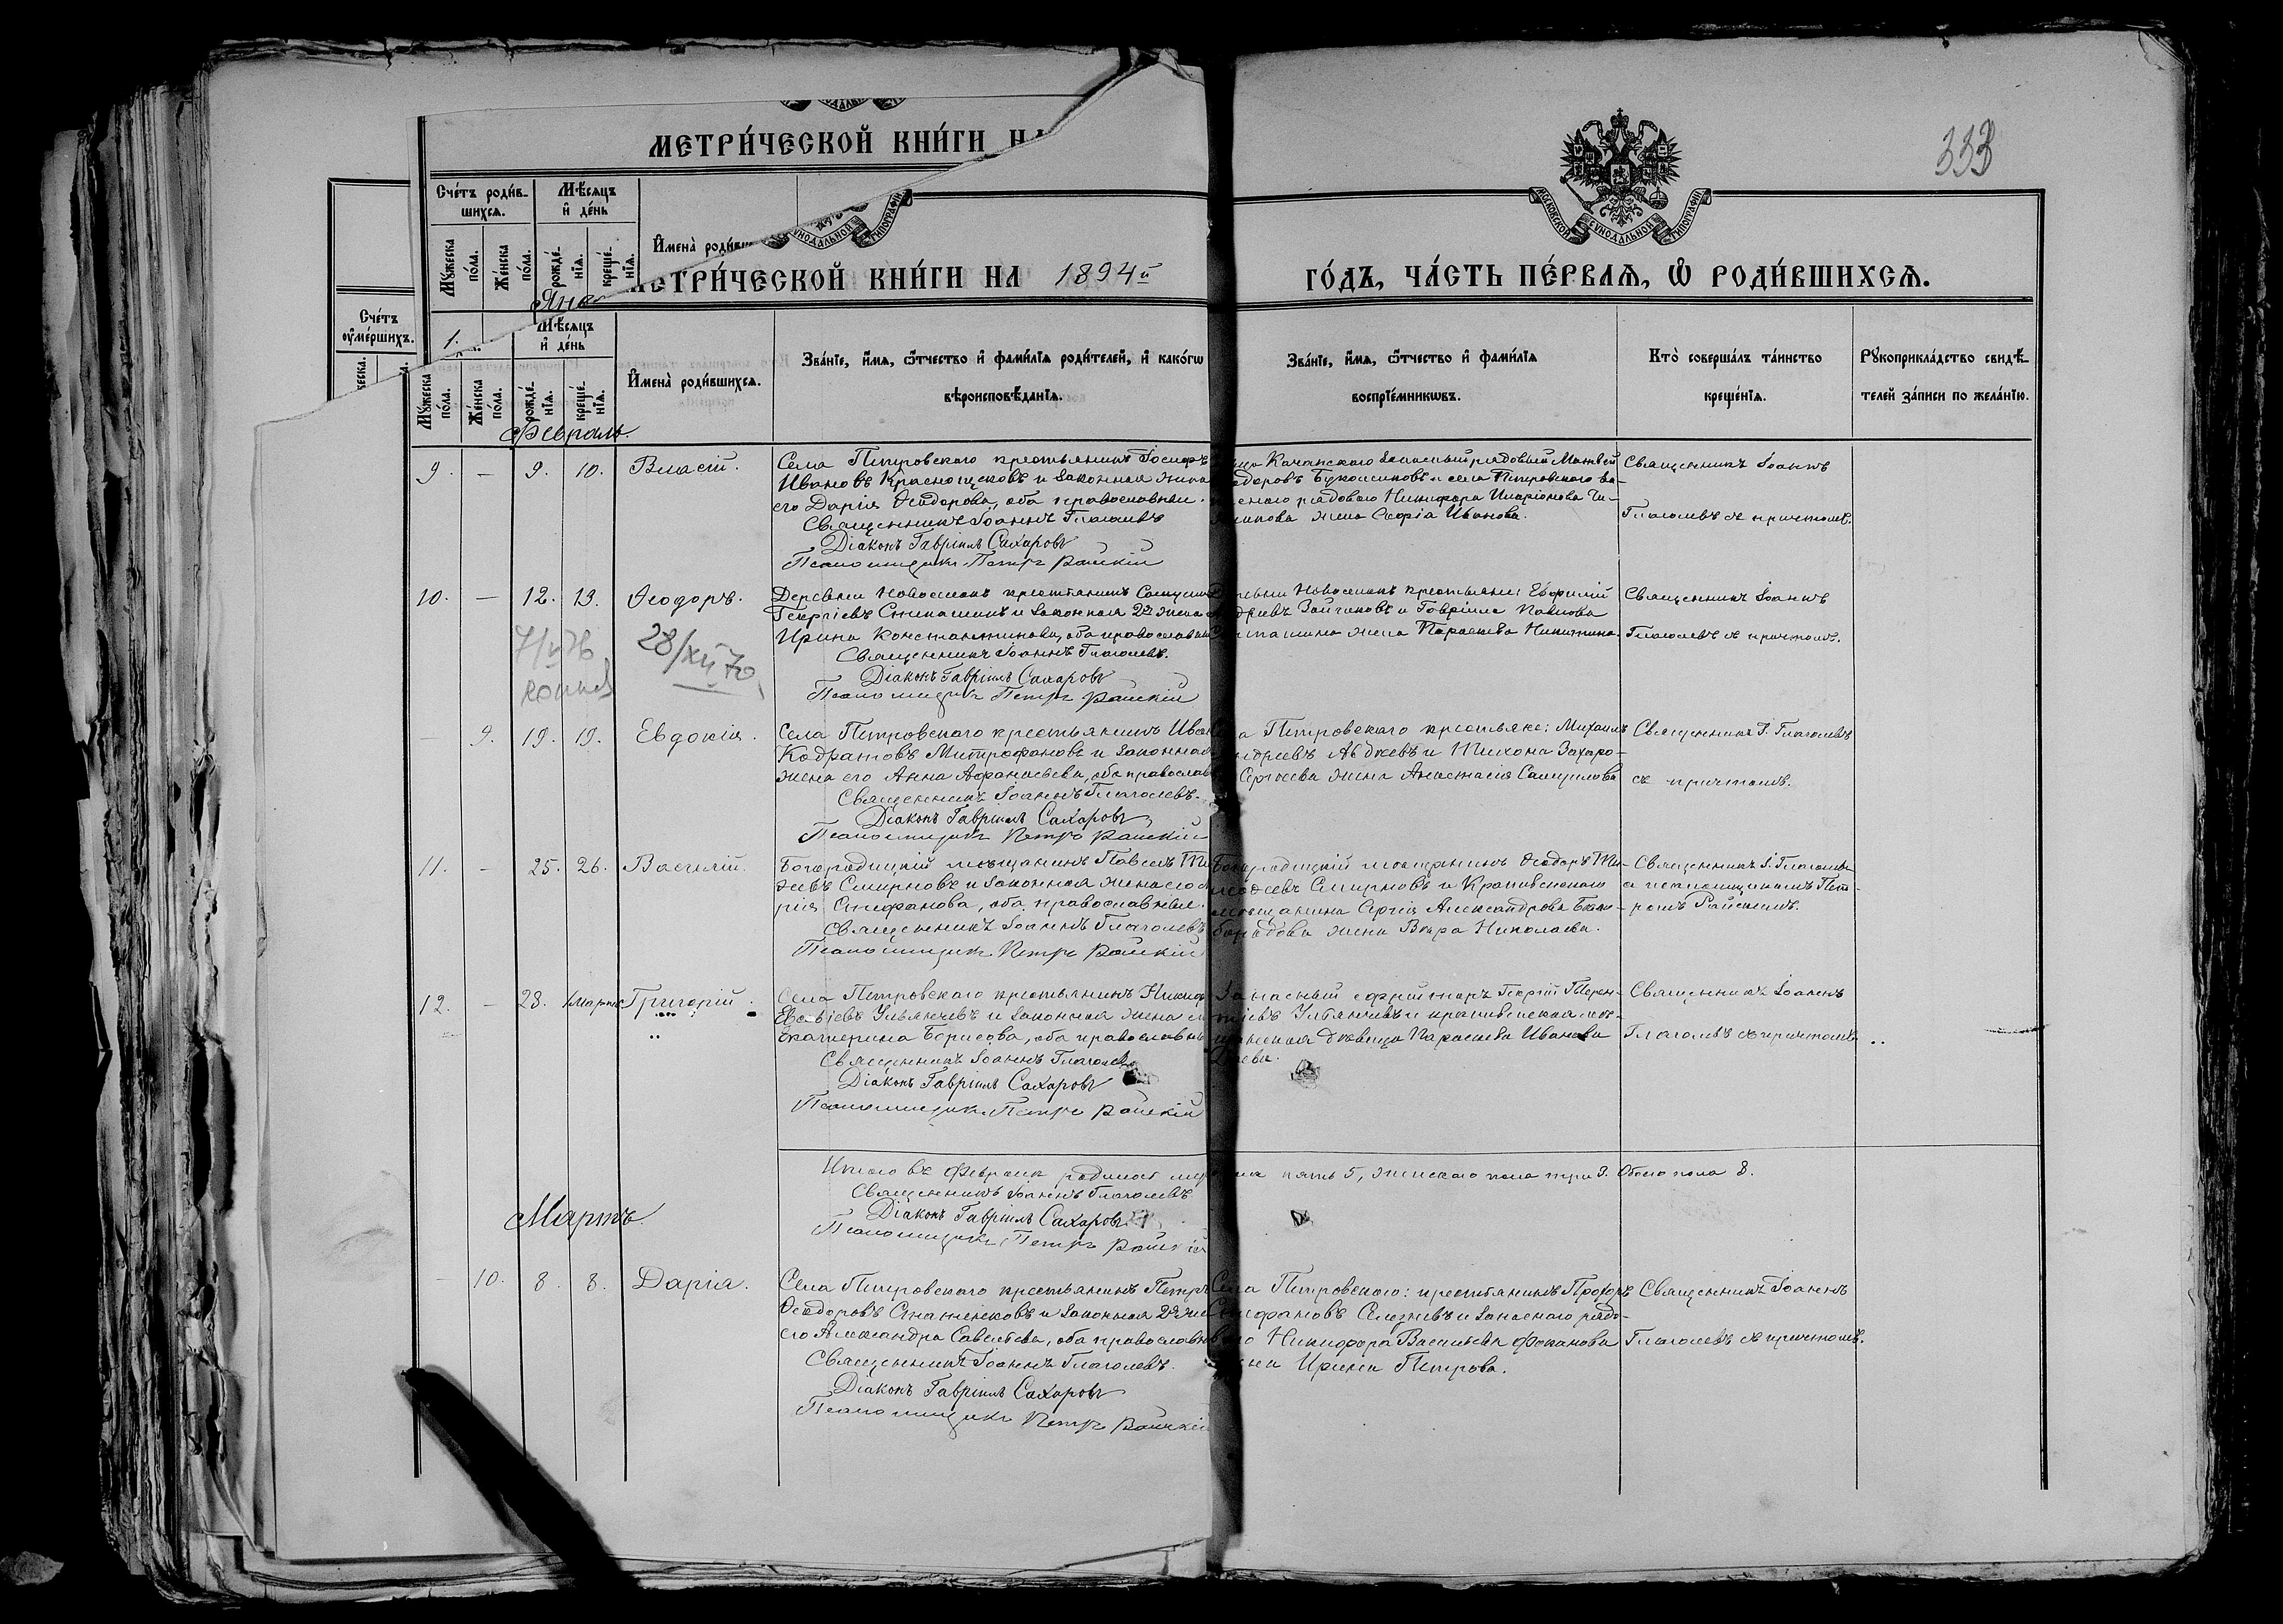 333
МЕТРИ́ЧЕСКОЙ КНИ́ГИ
Сче́тъ роди́в-
шихсѧ.
Мѣ́сѧцъ
и҆ де́нь
Мꙋ́жеска
по́ла.
Же́нска
по́ла.
рожде́-
нїѧ.
креще́-
нїѧ.
Сче́тъ
ᲂу҆ме́ршихъ.
1.
МОСКОВСКОЙ СѴНОДАЛЬНОЙ ТИПОГРАФІИ
МЕТРИ́ЧЕСКОЙ КНИ́ГИ НА 1894й ГО́ДЪ, ЧА́СТЬ ПЕ́РВАѦ, Ѡ҆ РОДИ́ВШИХСѦ.
Мѣ́сѧцъ
и҆ де́нь
Мꙋ́жеска
по́ла.
Же́нска
по́ла.
рожде́-
нїѧ.
креще́-
нїѧ.
И҆мена̀ роди́вшихсѧ.
Зва́нїе, и҆́мѧ, ѻ҆́тчество и҆ фами́лїѧ роди́телей, и҆ како́гѡ
вѣроисповѣ́данїѧ.
Зва́нїе, и҆́мѧ, ѻ҆́тчество и҆ фами́лїѧ
воспрїе́мникѡвъ.
Кто̀ соверша́лъ та́инство
креще́нїѧ.
Рꙋкоприкла́дство свидѣ́-
телей за́писи по жела́нїю.
Февраль.
9. — 9. 10. Власій.
Села Петровскаго крестьянинъ Іосифъ
Ивановъ Краснощековъ и законная жена
его Дарія Ѳеодорова, оба православные.
Священникъ Іоаннъ Глаголевъ
Діаконъ Гавріилъ Сахаровъ
Псаломщикъ Петръ Райскій
Качанскаго запасный рядовый Матвей
и села Петровскаго за-
паснаго рядового Никифора Иларіонова
жена Софія Иванова.
Священникъ Іоаннъ
Глаголевъ съ причтомъ.
10. — 12. 13. Ѳеодоръ.
28/XII 70
Деревни Новоселокъ крестьянинъ
Георгіевъ и законная 2я жена
Ирина Константинова, оба православные
Священникъ Іоаннъ Глаголевъ.
Діаконъ Гавріилъ Сахаровъ
Псаломщикъ Петръ Райскій
Деревни Новоселокъ крестьяне: Евфимій
Зайчиковъ и Гавріила Павлова
жена Параскева Никитина.
Священникъ Іоаннъ
Глаголевъ съ причтомъ.
— 9. 19. 19. Евдокія.
Села Петровскаго крестьянинъ Иванъ
Кодратовъ Митрофановъ и законная
жена его Анна Афанасьева, оба православ
Священникъ Іоаннъ Глаголевъ.
Діаконъ Гавріилъ Сахаровъ
Псаломщикъ Петръ Райскій
Петровскаго крестьяне: Михаилъ
Андреевъ Авдеевъ и Тихона Захаро-
Сергѣева жена Анастасія Самуилова
Священникъ І. Глаголевъ
съ причтомъ.
11. — 25. 26. Василій.
Богородицкій мѣщанинъ Павелъ
Смирновъ и законная жена его
Стефанова, оба православные.
Священникъ Іоаннъ Глаголевъ
Псаломщикъ Петръ Райскій
Богородицкій мѣщанинъ Ѳеодоръ Ти-
моѳеевъ Смирновъ и Крапивенскаго
мѣщанина Сергія Александрова
жена Вѣра Николаева.
Священникъ І. Глаголевъ
съ псаломщикомъ Пет-
ромъ Райскимъ.
12. — 28. 1 Марта Григорій.
Села Петровскаго крестьянинъ
Ульянчевъ и законная жена его
Екатерина Борисова, оба православные
Священникъ Іоаннъ Глаголевъ
Діаконъ Гавріилъ Сахаровъ
Псаломщикъ Петръ Райскій
Запасный ефрейторъ Георгій Терен-
тіевъ Ульянчевъ и крапивенская мѣ-
щанская дѣвица Параскева Иванова
Священникъ Іоаннъ
Глаголевъ съ причтомъ.
Итого въ Февралѣ родилось мужеска пять 5, женскаго пола три 3. Обоего пола 8.
Священникъ Іоаннъ Глаголевъ.
Діаконъ Гавріилъ Сахаровъ
Псаломщикъ Петръ Райскій
Мартъ.
— 10. 8. 8. Дарія.
Села Петровскаго крестьянинъ Петръ
Ѳеодоровъ и законная 2я жена
его Александра Савельева, оба православные
Священникъ Іоаннъ Глаголевъ.
Діаконъ Гавріилъ Сахаровъ
Псаломщикъ Петръ Райскій
Села Петровскаго: крестьянинъ Прохоръ
Стефановъ Селезневъ и запаснаго рядо-
вого Никифора Васильева Фоканова
жена Ирина Петрова.
Священникъ Іоаннъ
Глаголевъ съ причтомъ.